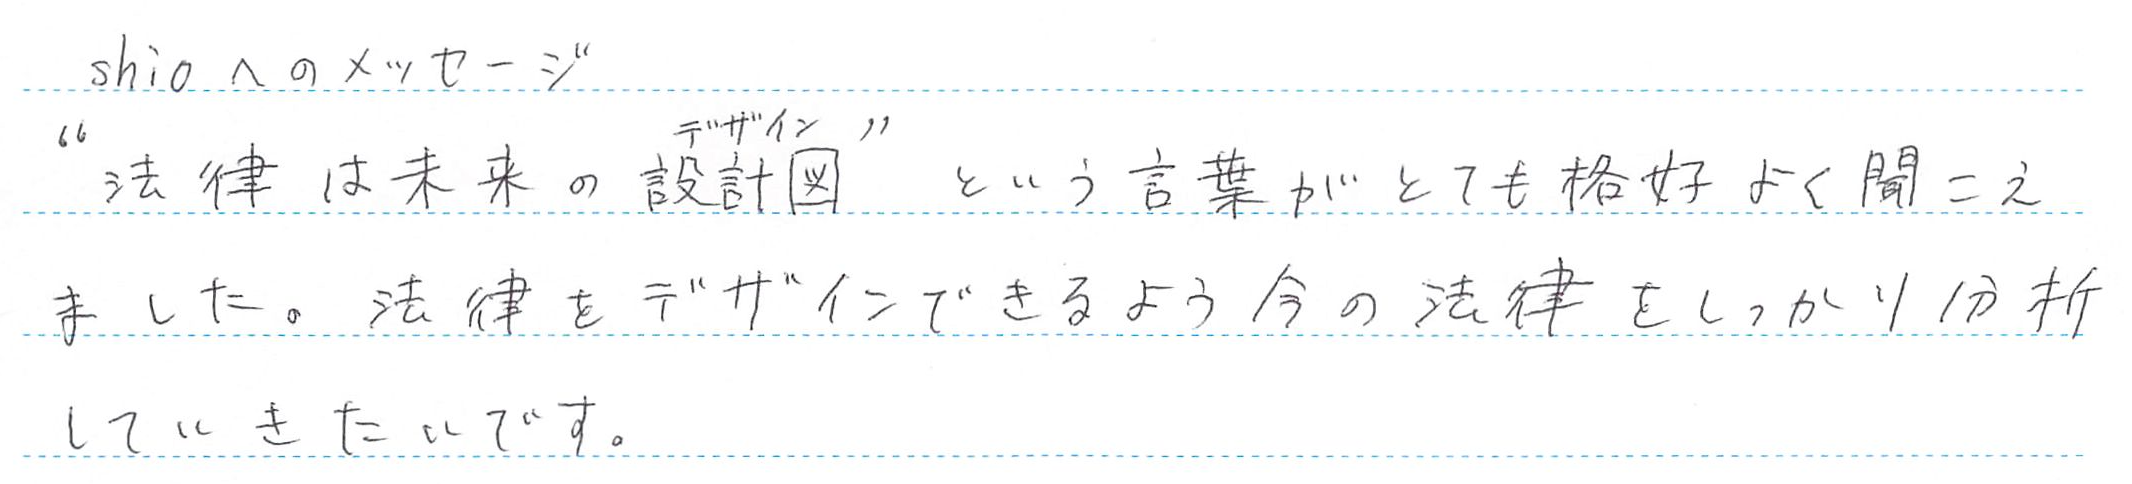 shioへのメッセージ
デザイン
“法律は未来の設計図”という言葉がとても格好よく聞こえ
ました。法律をデザインできるよう今の法律をしっかり分析
していきたいです。